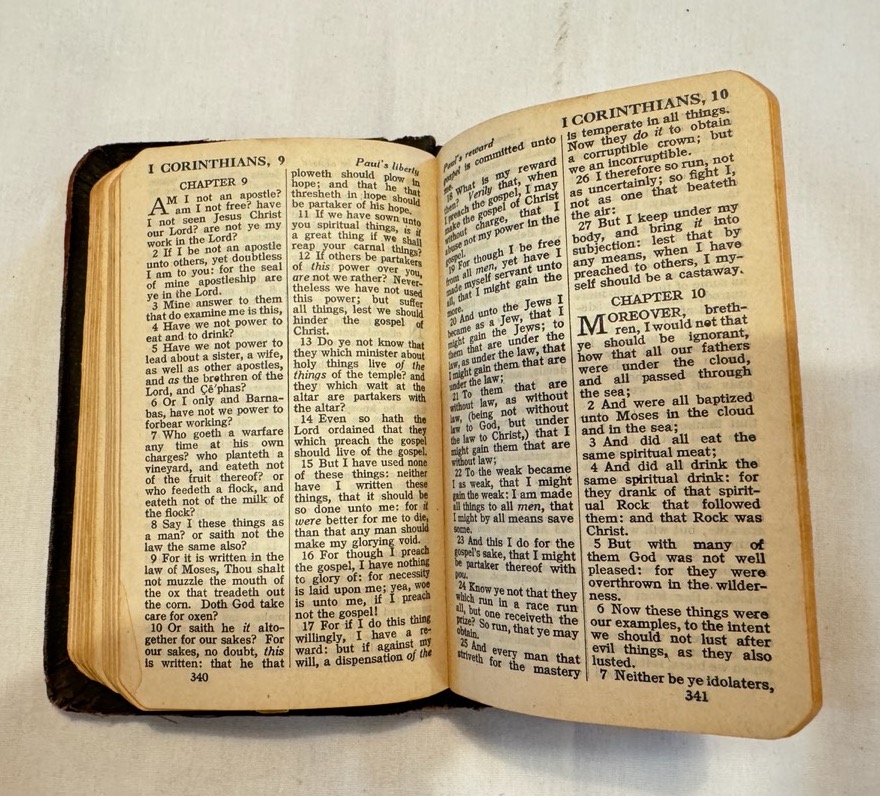 I CORINTHIANS, 9
Paul's liberty
CHAPTER 9
AM I not an apostle?
am I not free? have
I not seen Jesus Christ
our Lord? are not ye my
work in the Lord?
2 If I be not an apostle
unto others, yet doubtless
I am to you: for the seal
of mine apostleship are
ye in the Lord.
3 Mine answer to them
that do examine me is this,
4 Have we not power to
eat and to drink?
5 Have we not power to
lead about a sister, a wife,
as well as other apostles,
and as the brethren of the
Lord, and Çē'phas?
6 Or I only and Barna-
bas, have not we power to
forbear working?
7 Who goeth a warfare
any time at his own
charges? who planteth a
vineyard, and eateth not
of the fruit thereof? or
who feedeth a flock, and
eateth not of the milk of
the flock?
8 Say I these things as
a man? or saith not the
law the same also?
9 For it is written in the
law of Moses, Thou shalt
not muzzle the mouth of
the ox that treadeth out
the corn. Doth God take
care for oxen?
10 Or saith he it alto-
gether for our sakes? For
our sakes, no doubt, this
is written: that he that
340
ploweth should plow in
hope; and that he that
thresheth in hope should
be partaker of his hope.
11 If we have sown unto
you spiritual things, is it
a great thing if we shall
reap your carnal things?
12 If others be partakers
of this power over you,
are not we rather? Never-
theless we have not used
this power; but suffer
all things, lest we should
hinder the gospel of
Christ.
13 Do ye not know that
they which minister about
holy things live of the
things of the temple? and
they which wait at the
altar are partakers with
the altar?
14 Even so hath the
Lord ordained that they
which preach the gospel
should live of the gospel.
15 But I have used none
of these things: neither
have I written these
things, that it should be
so done unto me: for it
were better for me to die,
than that any man should
make my glorying void.
16 For though I preach
the gospel, I have nothing
to glory of: for necessity
is laid upon me; yea, woe
is unto me, if I preach
not the gospel!
17 For if I do this thing
willingly, I have a re-
ward: but if against my
will, a dispensation of the
Paul's reward
I CORINTHIANS, 10
gospel is committed unto
18 What is my reward
then? Verily that, when
I preach the gospel, I may
make the gospel of Christ
without charge, that I
abuse not my power in the
gospel.
19 For though I be free
from all men, yet have I
made myself servant unto
all, that I might gain the
more.
20 And unto the Jews I
became as a Jew, that I
might gain the Jews; to
them that are under the
law, as under the law, that
I might gain them that are
under the law;
21 To them that are
without law, as without
law, (being not without
law to God, but under
the law to Christ,) that I
might gain them that are
without law;
22 To the weak became
I as weak, that I might
gain the weak: I am made
all things to all men, that
I might by all means save
some.
23 And this I do for the
gospel's sake, that I might
be partaker thereof with
you.
24 Know ye not that they
which run in a race run
all, but one receiveth the
prize? So run, that ye may
obtain.
25 And every man that
striveth for the mastery
is temperate in all things.
Now they do it to obtain
a corruptible crown; but
we an incorruptible.
26 I therefore so run, not
as uncertainly; so fight I,
not as one that beateth
the air:
27 But I keep under my
body, and bring it into
subjection: lest that by
any means, when I have
preached to others, I my-
self should be a castaway.
CHAPTER 10
MOREOVER, breth-
ren, I would not that
ye should be ignorant,
how that all our fathers
were under the cloud,
and all passed through
the sea;
2 And were all baptized
unto Moses in the cloud
and in the sea;
3 And did all eat the
same spiritual meat;
4 And did all drink the
same spiritual drink: for
they drank of that spirit-
ual Rock that followed
them: and that Rock was
Christ.
5 But with many of
them God was not well
pleased: for they were
overthrown in the wilder-
ness.
6 Now these things were
our examples, to the intent
we should not lust after
evil things, as they also
lusted.
7 Neither be ye idolaters,
341